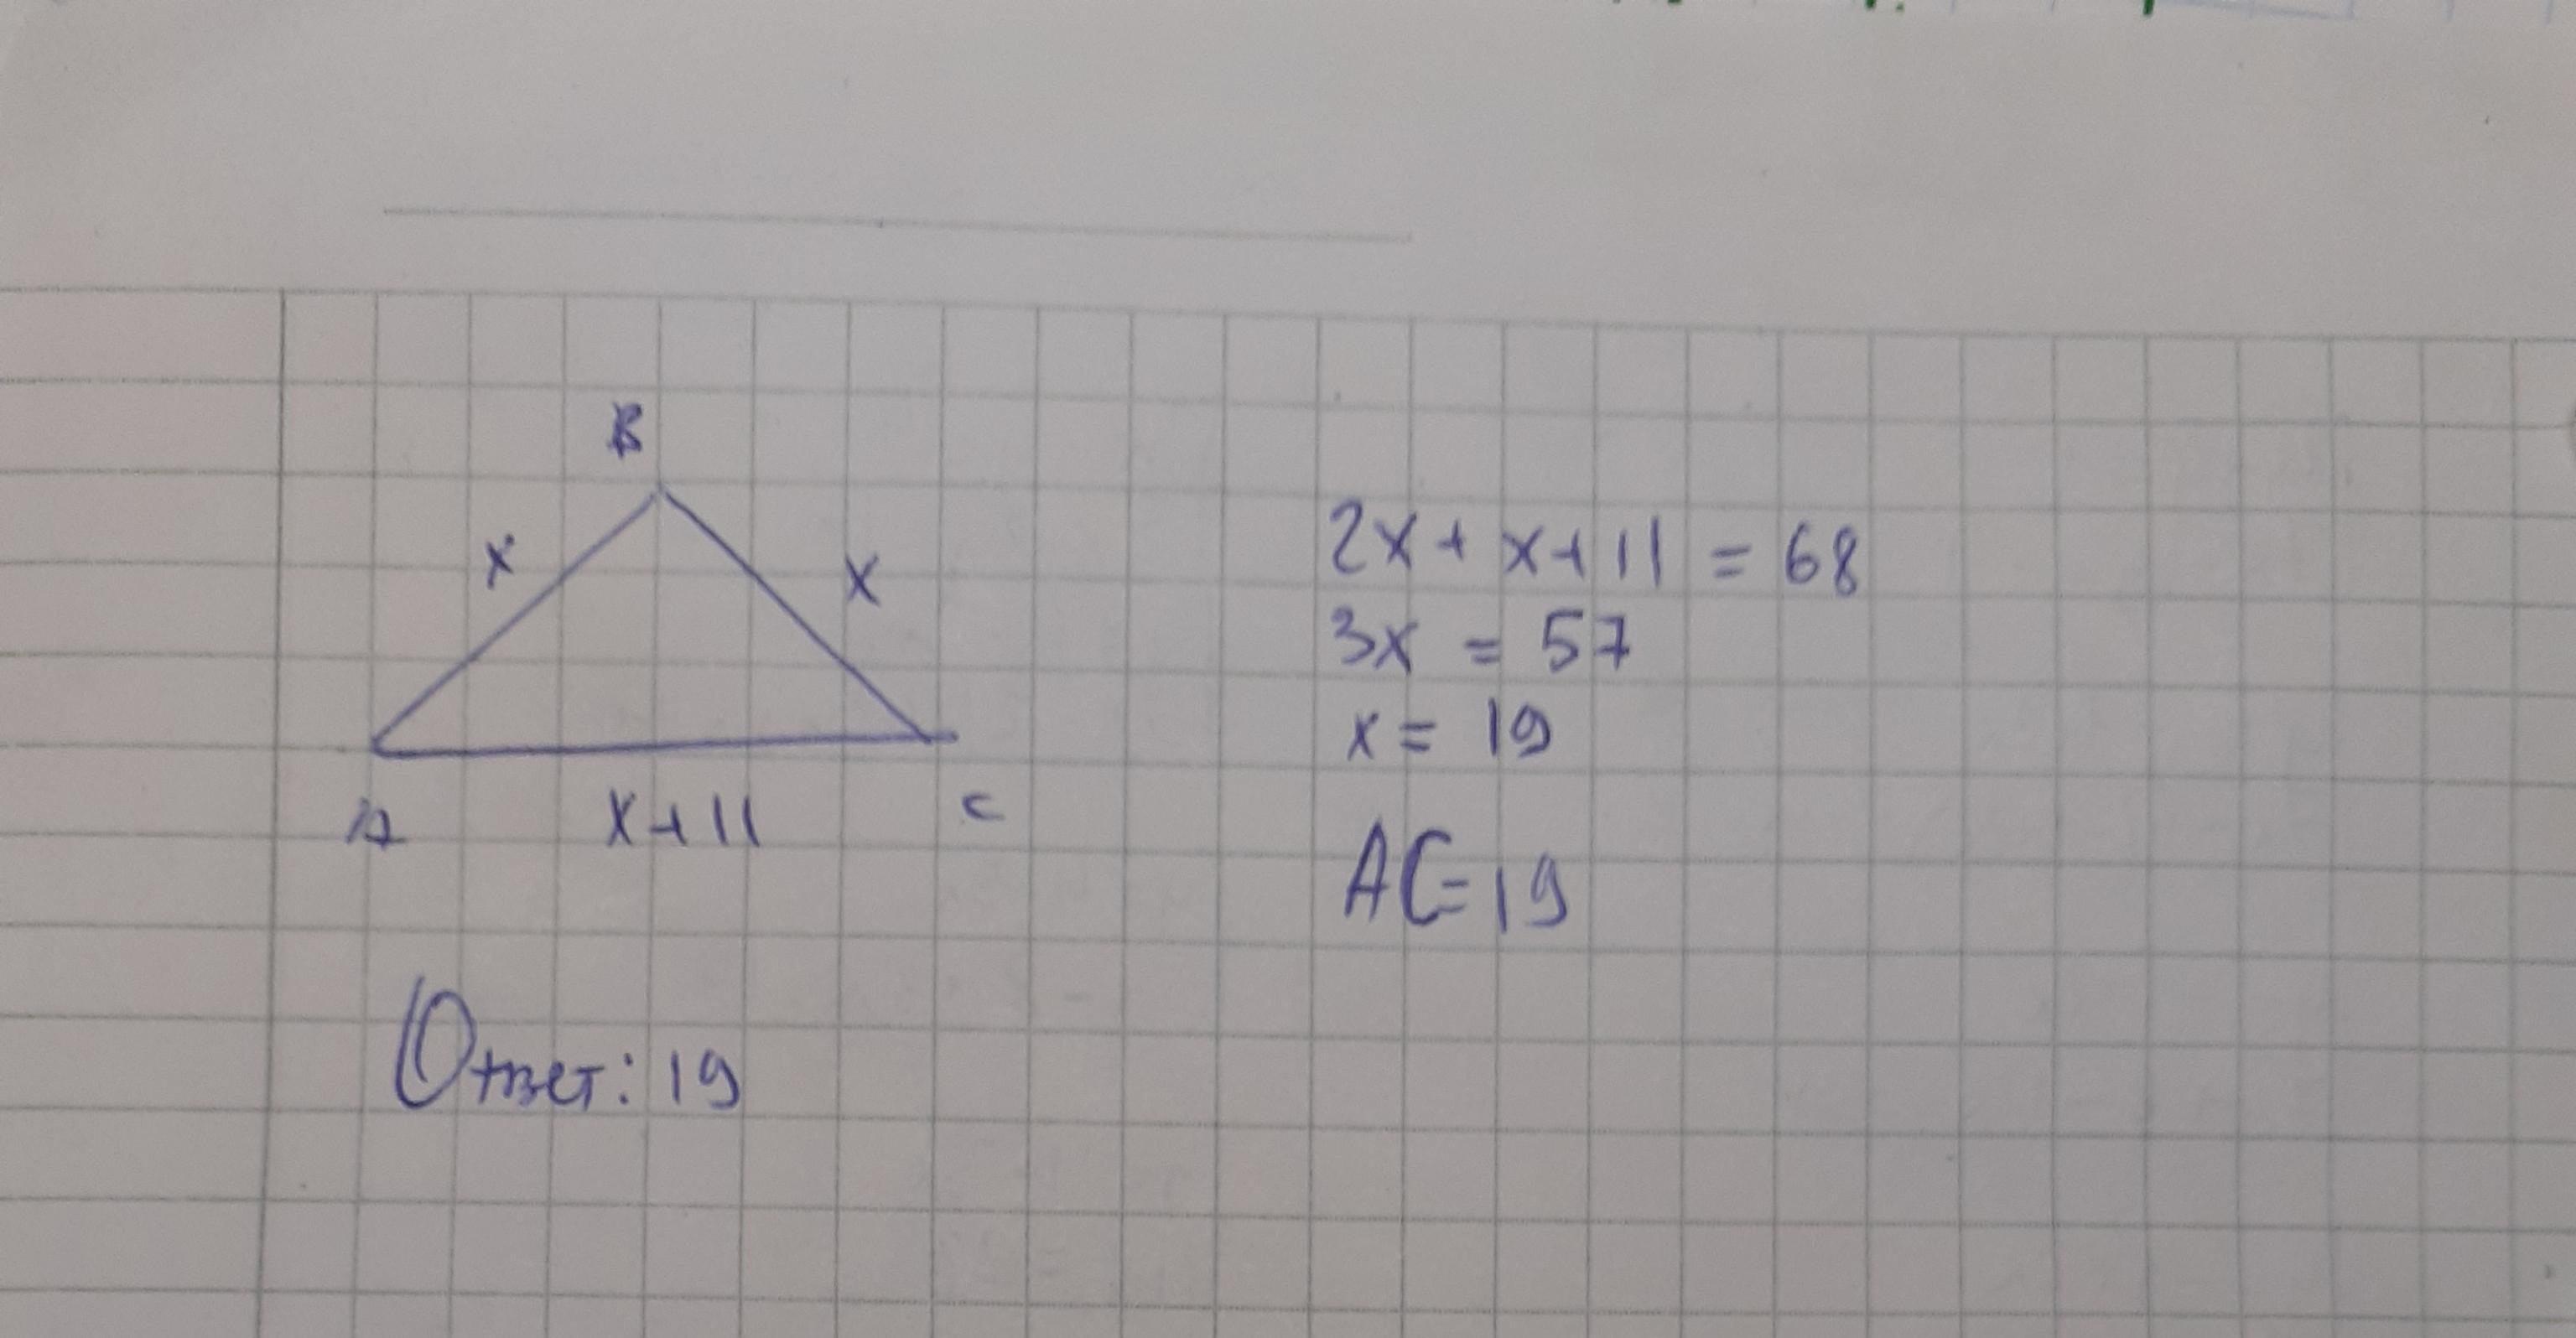 B
x
x
A
x+11
C
2x + x+11 = 68
3x = 57
x = 19
AC=19
Ответ: 19